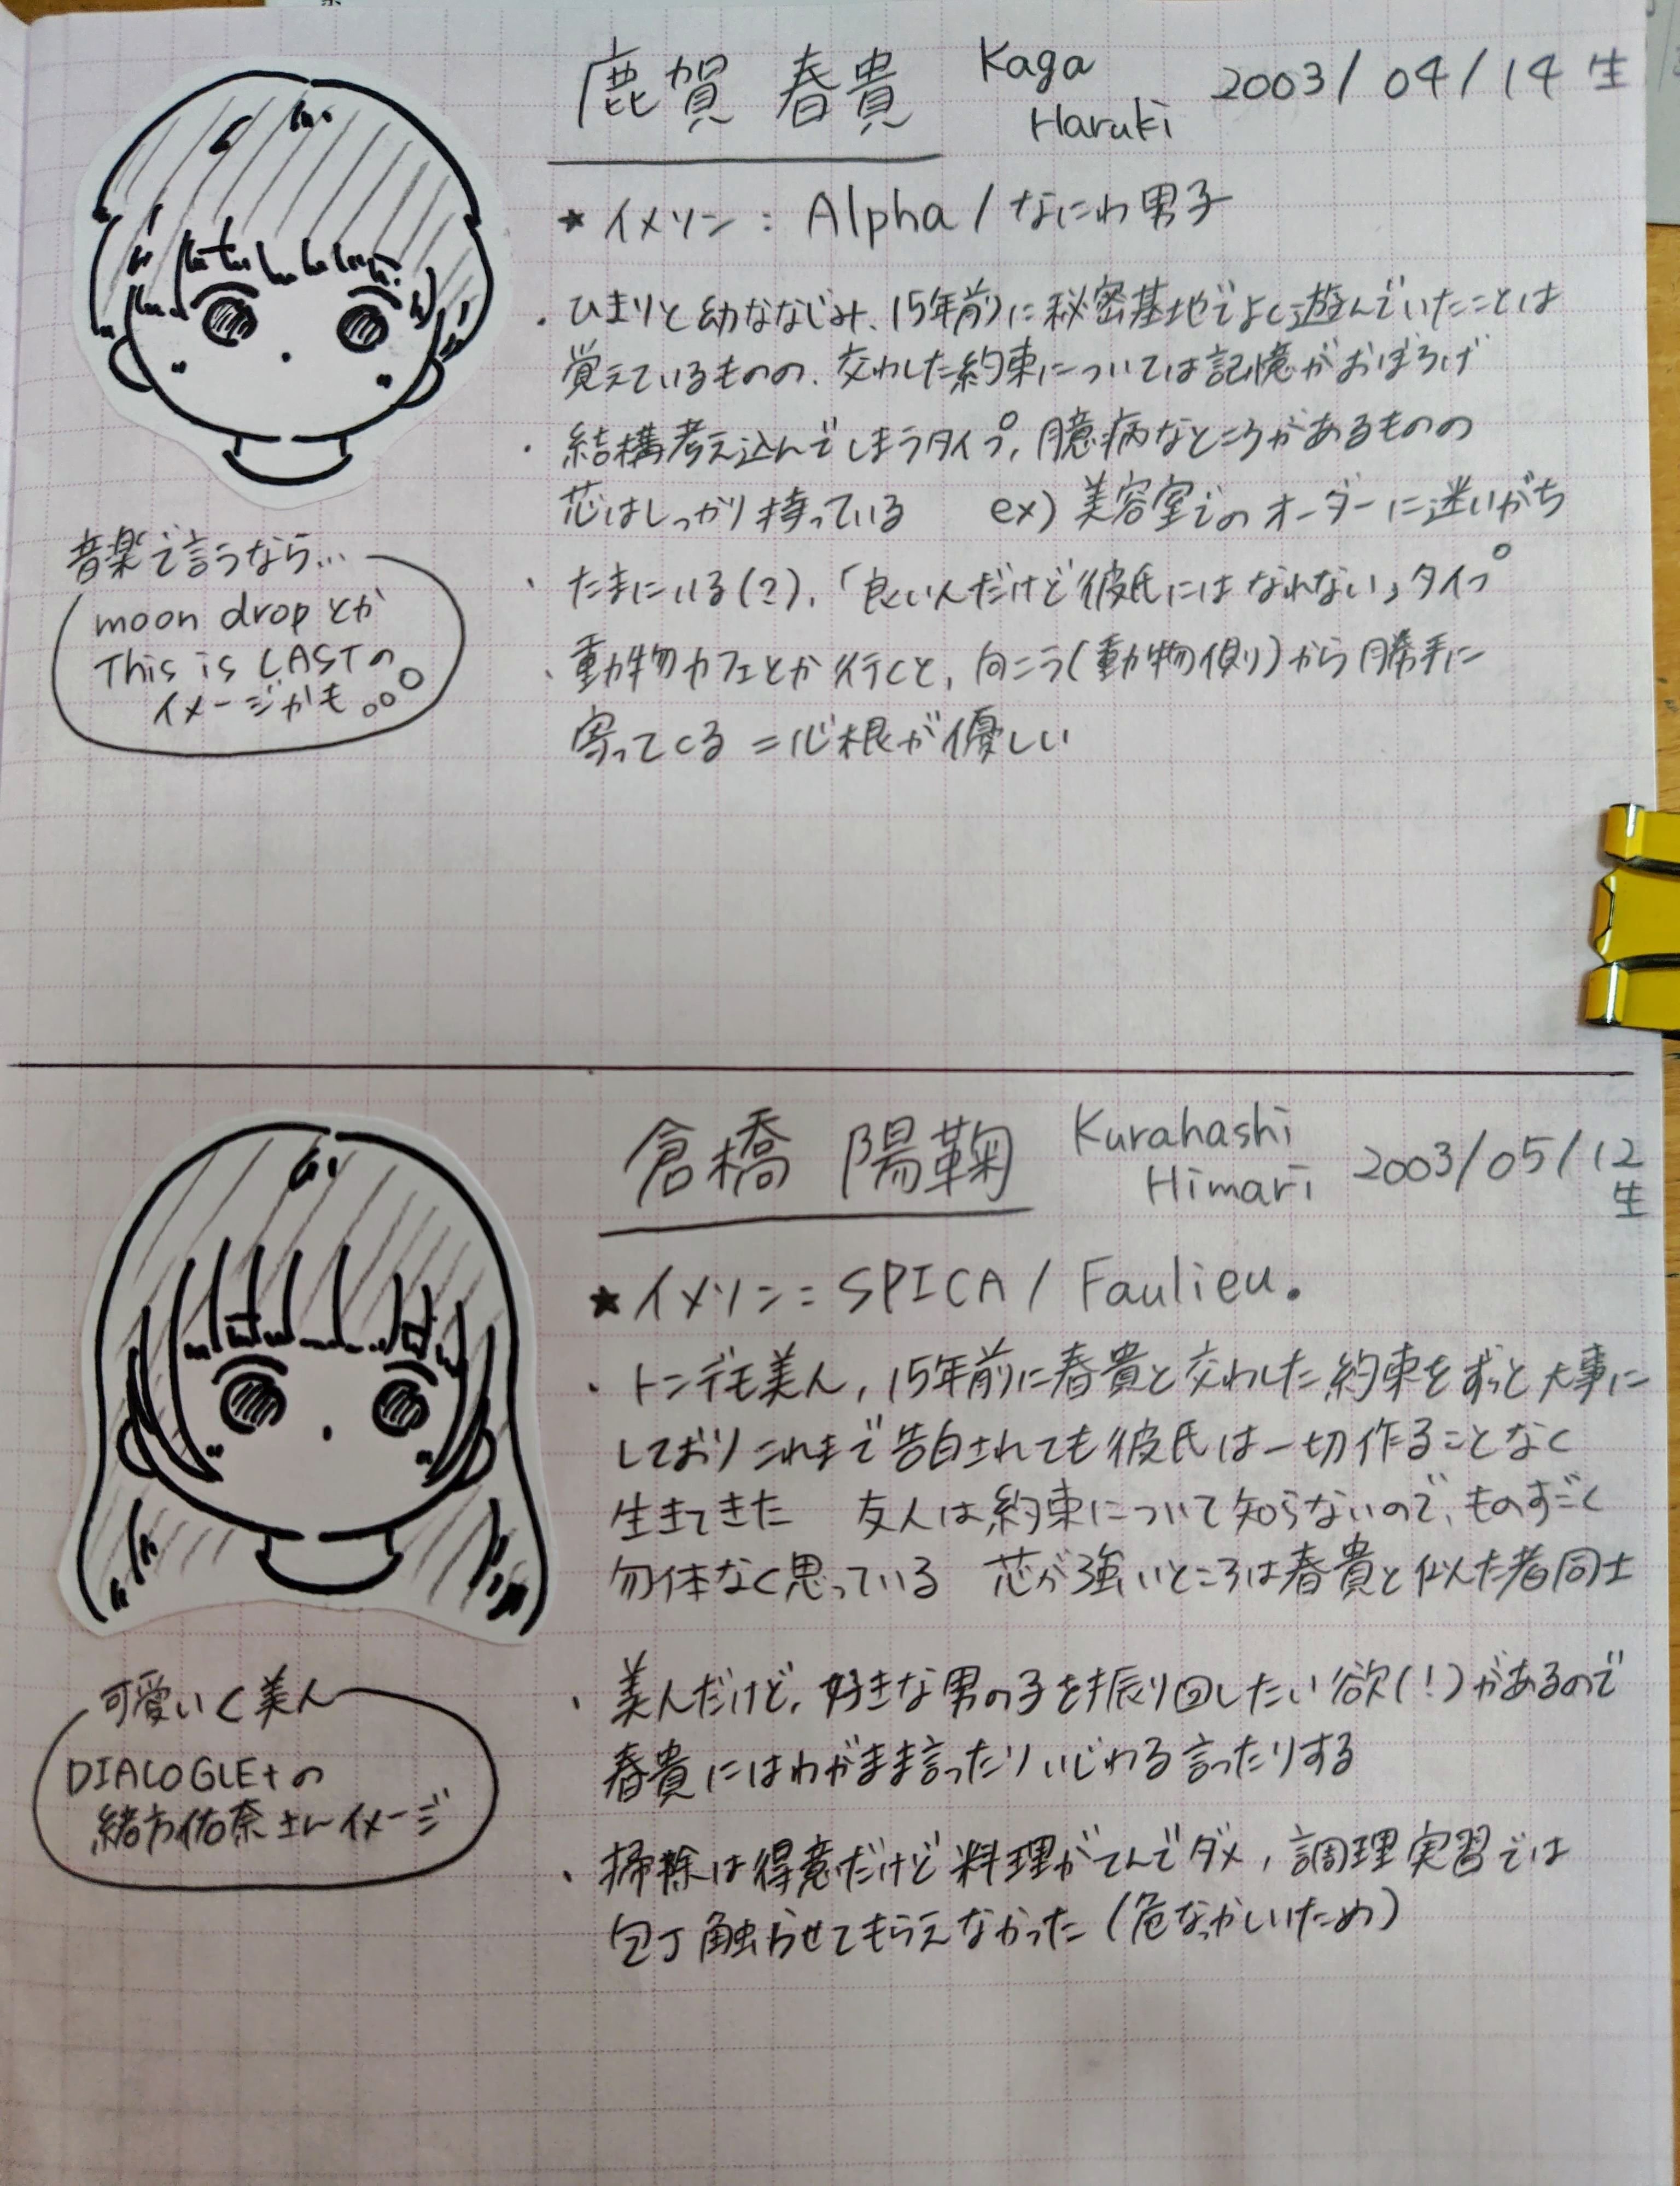 鹿賀 春貴 Kaga Haruki 2003/04/14 生
★イメソン: Alpha / なにわ男子
・ひまりと幼ななじみ、15年前に秘密基地でよく遊んでいたことは
覚えているものの、交わした約束については記憶がおぼろげ
・結構考え込んでしまうタイプ, 臆病なところがあるものの
芯はしっかり持っている ex) 美容室でのオーダーに迷いがち
・たまにいる(?)、「良い人だけど彼氏にはなれない」タイプ
・動物カフェとか行くと, 向こう(動物側)から勝手に
寄ってくる = 心根が優しい
音楽で言うなら…
moon dropとか
This is LASTの
イメージかも。。○
倉橋 陽鞠 Kurahashi Himari 2003/05/12 生
★イメソン: SPICA / Faulieu.
・トンデモ美人, 15年前に春貴と交わした約束をずっと大事に
しておりこれまで告白されても彼氏は一切作ることなく
生きてきた 友人は約束について知らないので、ものすごく
勿体なく思っている 芯が強いところは春貴と似た者同士
・美人だけど, 好きな男の子を振り回したい欲(!)があるので
春貴にはわがまま言ったりいじわる言ったりする
・掃除は得意だけど料理がてんでダメ, 調理実習では
包丁触らせてもらえなかった (危なっかしいため)
可愛いく美人
DIALOGUE+の
緒方佑奈さんイメージ